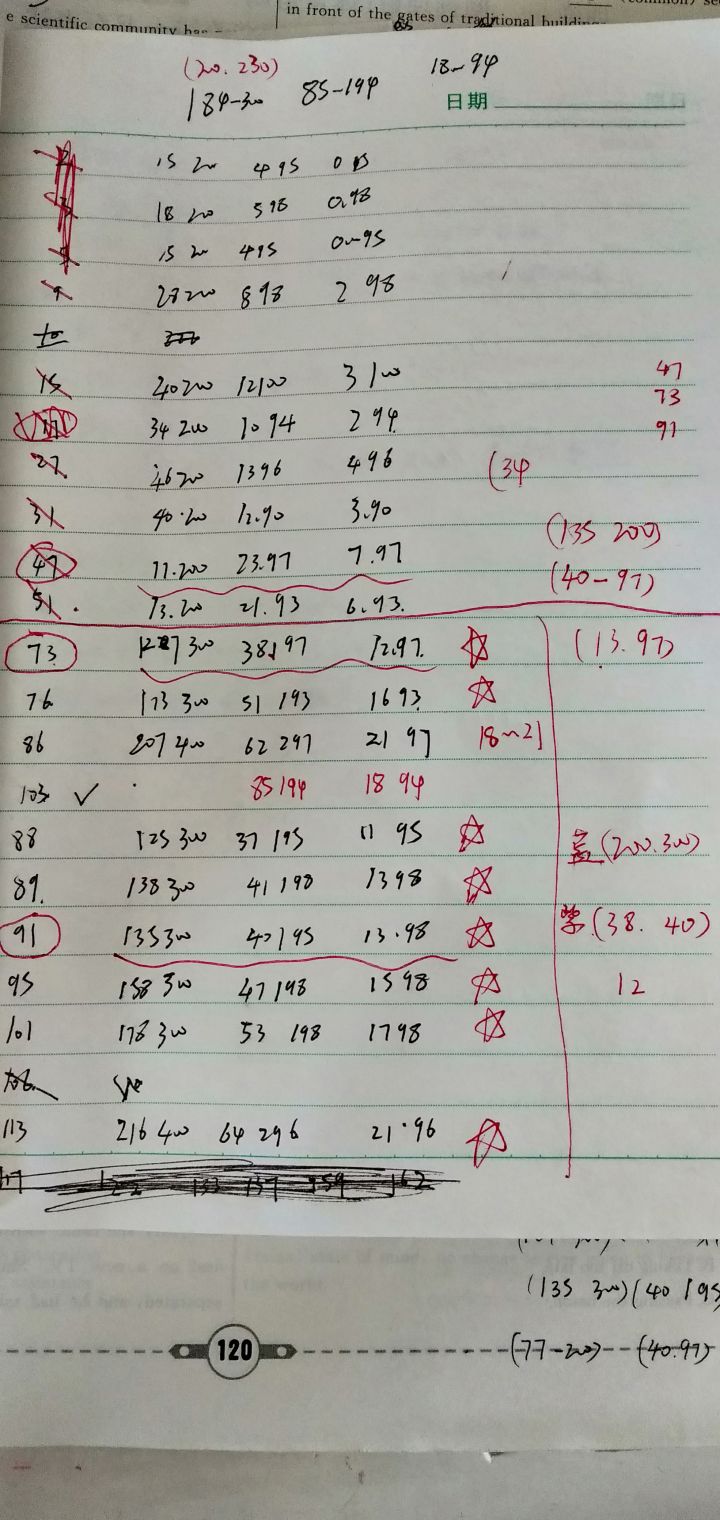 e scientific community has
in front of the gates of traditional building
(20. 230)
184-300 85-194 18-94
日期
2 15 20 495 0 95
3 18 20 598 0.98
5 15 20 495 0~95
9 28 200 898 2 98
15 40 200 12100 3 100
47
73
17 34 200 10 94 2 94
91
27 46 20 1396 4 96 (34
31 40.20 12.90 3.90
(135 200)
47 77.200 23.97 7.97
(40-97)
51. 73.20 21.93 6.93.
73 300 38197 12.97. (13.97)
76 173 300 51 193 16 93
86 207 400 62 297 21 97 18~21
103 ✓ 85194 18 94
88 125 300 37 195 11 95
(200.300)
89. 138 300 41 198 13 98
91 135 300 40195 13.98
(38. 40)
95 158 300 47 198 15 98 12
101 178 300 53 198 17 98
113 216 400 64 296 21.96
(135 300)(40 195
120
(77-200)--(40.97)